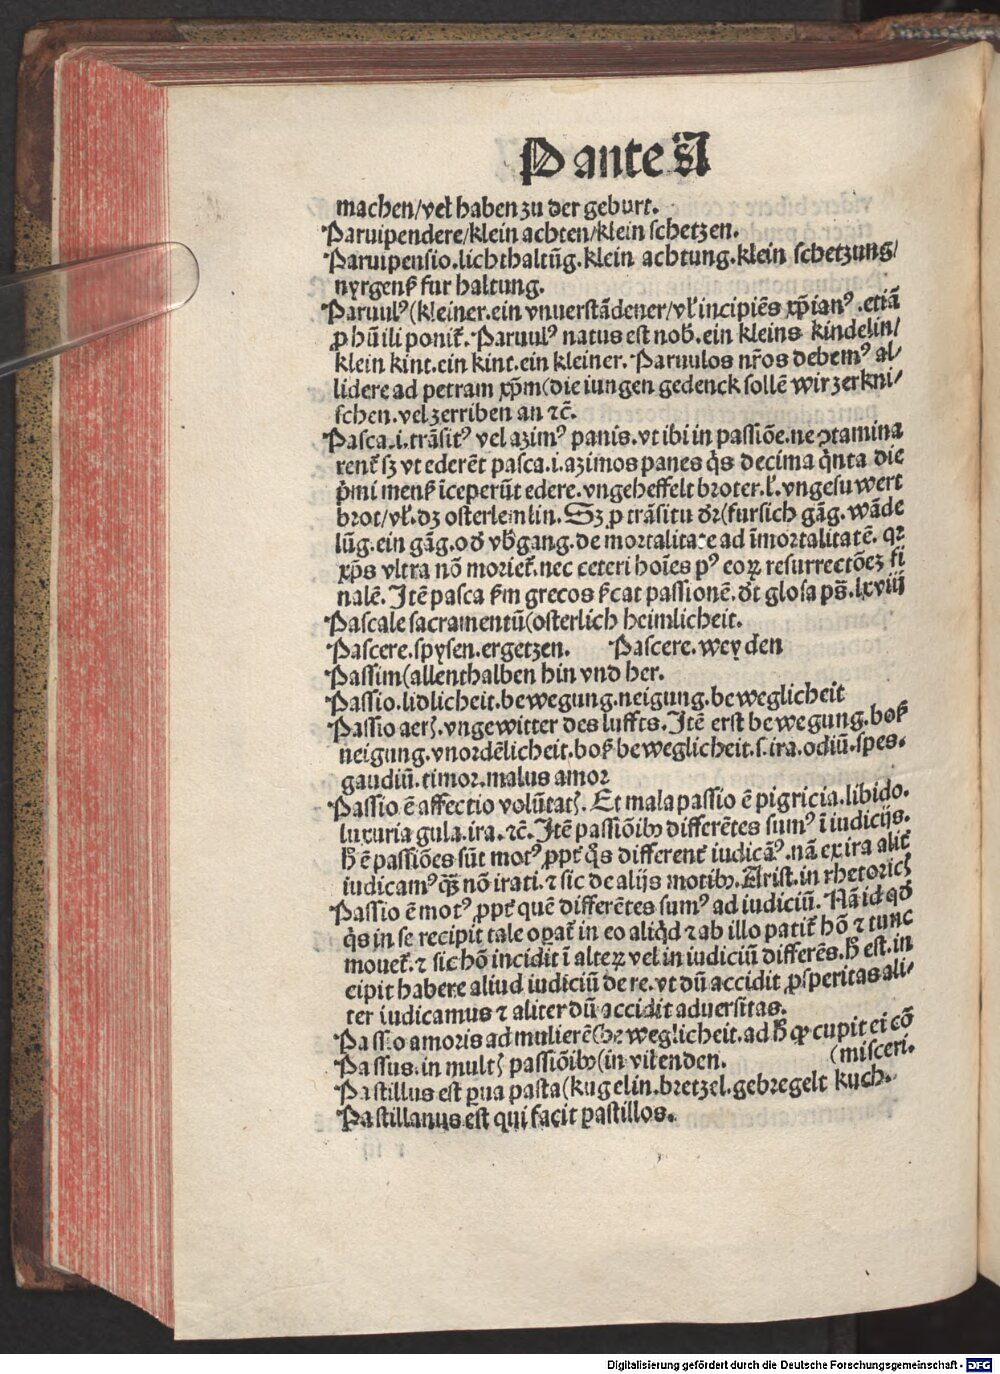 P ante A
machen/vel̄ haben zu der geburt.
Paruipendere/klein achten/klein schetzen.
Paruipensio.lichthaltūg.klein achtung.klein schetzung/
nyrgenß fur haltung.
Paruulꝰ(kleiner.ein vnuerstādener/vl̄ incipiēs xp̄ianꝰ.etiā
ꝓ hūili poniť. Paruulꝰ natus est nob̄.ein kleins kindelin/
klein kint.ein kint.ein kleiner. Paruulos nr̄os debemꝰ al/
lidere ad petram xp̄m(die iungen gedenck sollē wir zerkni/
schen.vel zerriben an ⁊c̄.
Pasca.i.trāsitꝰ vel azimꝰ panis.vt ibi in passiōe.ne ꝯtamina
renť sꝫ vt ederēt pasca.i.azimos panes q̄s decima q̄nta die
p̄mi menß īceperūt edere.vngeheffelt broter.l̄.vngesuwert
brot/vl̄.dꝫ osterlemlin. Sꝫ ꝓ trāsitu dr̄(fursich gāg.wāde
lūg.ein gāg.od̄ vb̄gang.de mortalitate ad īmortalitatē. qꝛ
xp̄s vltra nō morieť.nec ceteri hoīes pꝰ eoꝝ resurrectōeꝫ fi
nalē. Itē pasca ẜm grecos ẜcat passionē.dt̄ glosa ps̄.lxviij
Pascale sacramentū(osterlich heimlicheit.
Pascere.spysen.ergetzen. Pascere.weyden
Passim(allenthalben hin vnd her.
Passio.lidlicheit.bewegung.neigung.beweglicheit
Passio aerꝭ.vngewitter des luffts. Itē erst bewegung.boß
neigung.vnordēlicheit.boß beweglicheit.s.ira.odiū.spes.
gaudiū.timor.malus amor
Passio ē affectio volūtatꝭ. Et mala passio ē pigricia.libido.
luxuria gula.ira.⁊c̄. Itē passiōibꝰ differētes sumꝰ ī iudicijs.
h̄ ē passiōes sūt motꝰ ꝓpť q̄s differenť iudicāꝰ.nā ex ira aliť
iudicamꝰ qꝫ̄ nō irati.⁊ sic de alijs motibꝰ. Arist.in rhetoricꝭ
Passio ē motꝰ ꝓpť quē differētes sumꝰ ad iudiciū. Nā id qd̄
q̄s in se recipit tale oꝑať in eo aliq̄d ⁊ ab illo patiť hō ⁊ tunc
moueť.⁊ sic hō incidit ī alteꝝ vel in iudiciū differēs.h̄ est.in
cipit habere aliud iudiciū de re.vt dū accidit ꝓsperitas ali/
ter iudicamus ⁊ aliter dū accidit aduersitas.
Passio amoris ad mulierē(beweglicheit.ad h̄ ꝙ cupit ei cō
Passus.in multꝭ passiōibꝰ(in vil lenden. (misceri.
Pastillus est ꝑua pasta(kugelin.bretzel.gebregelt kuch.
Pastillanus est qui facit pastillos.
Digitalisierung gefördert durch die Deutsche Forschungsgemeinschaft - DFG